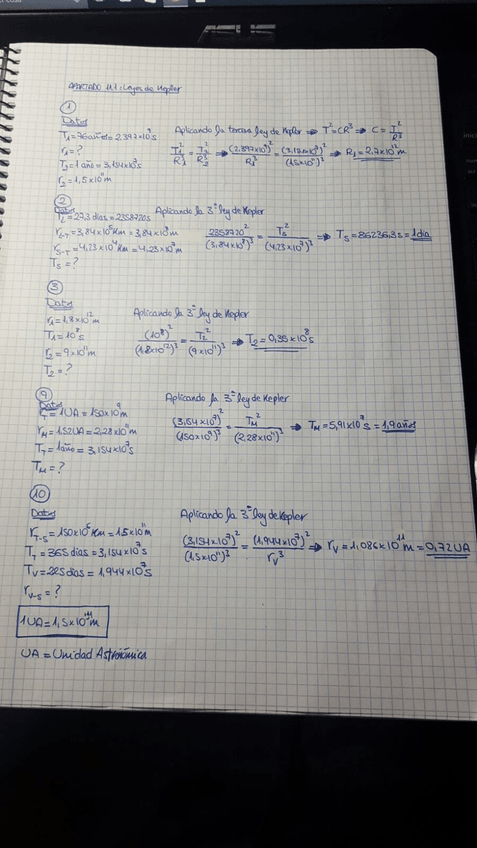 ASUS
APARTADO 4.1: Leyes de Kepler
①
Datos
T₁=76años=2,397×10⁹s
r₁=?
T₂=1 año=3,154×10⁷s
r₂=1,5×10¹¹m
Aplicando la tercera ley de Kepler ⇒ T²=CR³ ⇒ C=T²/R³
T₁²/R₁³ = T₂²/R₂³ ⇒ (2,397×10⁹)²/R₁³ = (3,154×10⁷)²/(1,5×10¹¹)³ ⇒ R₁=2,7×10¹²m
②
Datos
T_L=27,3 días=2358720s
r_L-T=3,84×10⁵Km=3,84×10⁸m
r_S-T=4,23×10⁴Km=4,23×10⁷m
T_S=?
Aplicando la 3ª ley de Kepler
2358720²/(3,84×10⁸)³ = T_S²/(4,23×10⁷)³ ⇒ T_S=86236,3s=1día
③
Datos
r₁=1,8×10¹²m
T₁=10⁸s
r₂=9×10¹¹m
T₂=?
Aplicando la 3ª ley de Kepler
(10⁸)²/(1,8×10¹²)³ = T₂²/(9×10¹¹)³ ⇒ T₂=0,35×10⁸s
⑨
Datos
r_T=1UA=150×10⁹m
r_M=1,52UA=2,28×10¹¹m
T_T=1año=3,154×10⁷s
T_M=?
Aplicando la 3ª ley de Kepler
(3,154×10⁷)²/(150×10⁹)³ = T_M²/(2,28×10¹¹)³ ⇒ T_M=5,91×10⁷s=1,9años
⑩
Datos
r_T-S=150×10⁶Km=1,5×10¹¹m
T_T=365 días=3,154×10⁷s
T_V=225 días=1,944×10⁷s
r_V-S=?
Aplicando la 3ª ley de Kepler
(3,154×10⁷)²/(1,5×10¹¹)³ = (1,944×10⁷)²/r_V³ ⇒ r_V=1,086×10¹¹m=0,72UA
1UA=1,5×10¹¹m
UA=Unidad Astrónomica